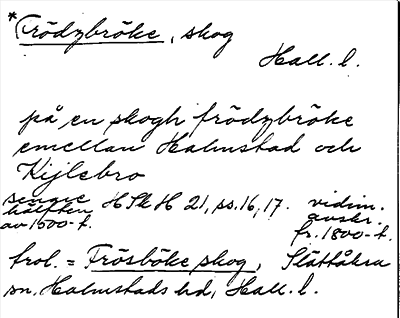 *Frödzbröke, skog
Hall. l.
på en skogh frödzbröke
emellan Halmstad och
Kijlebro
senare hälften av 1500-t. HSkH 21, ss. 16, 17. vidim. avskr. fr. 1800-t.
trol. = Frösböke skog, Slättåkra
sn. Halmstads hd, Hall. l.